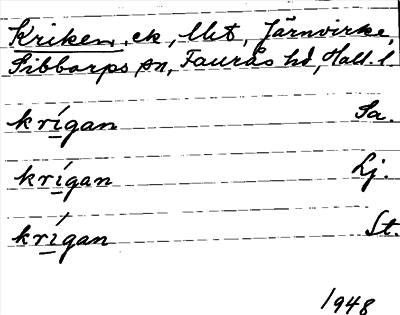 Kriken, ek, Ust, Järnvirke,
Sibbarps sn, Faurås hd, Hall. l.
krígan Sa.
krígan Lj.
krígan St.
1948